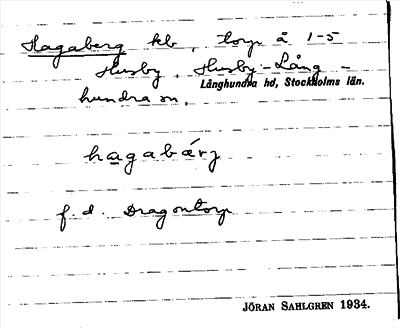 Hagaberg kb, torp å 1-5
Husby, Husby-Lång-
Långhundra hd, Stockholms län.
hundra sn.
hagabárj
f. d. Dragontorp
JÖRAN SAHLGREN 1934.